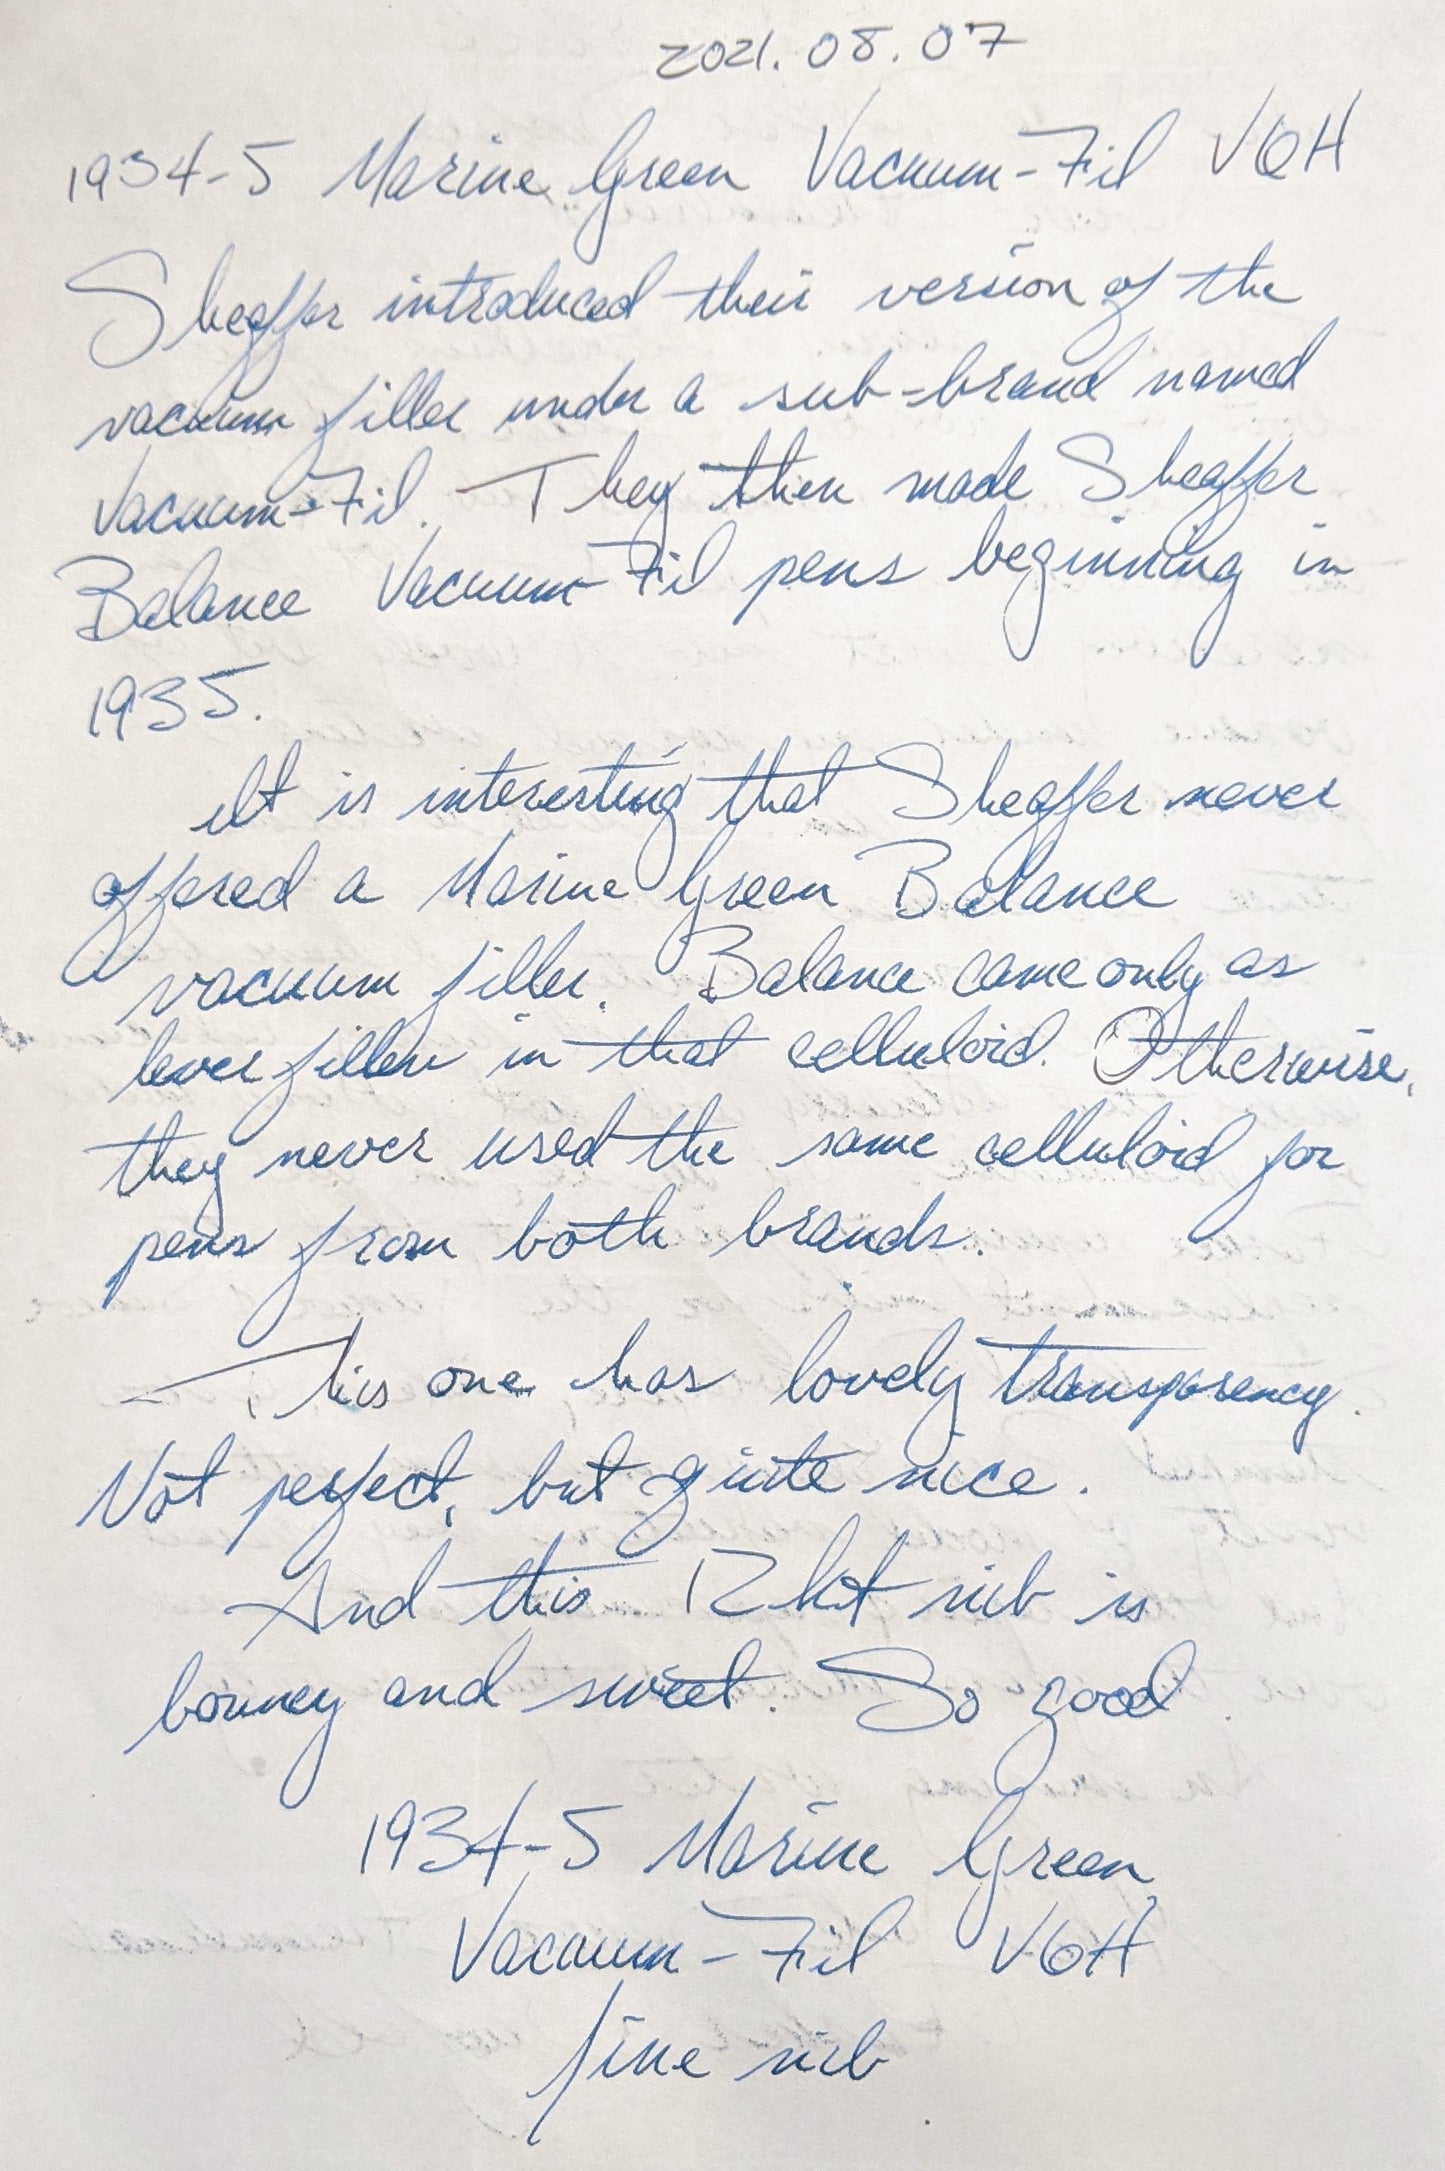 2021.08.07
1934-5 Marine Green Vacuum-Fil V6H
Sheaffer introduced their version of the
vacuum filler under a sub-brand named
Vacuum-Fil. They then made Sheaffer
Balance Vacuum-Fil pens beginning in
1935.
It is interesting that Sheaffer never
offered a Marine Green Balance
vacuum filler. Balance came only as
lever fillers in that celluloid. Otherwise,
they never used the same celluloid for
pens from both brands.
This one has lovely transparency.
Not perfect, but quite nice.
And this 12 kt nib is
bouncy and sweet. So good.
1934-5 Marine Green
Vacuum-Fil V6H
fine nib